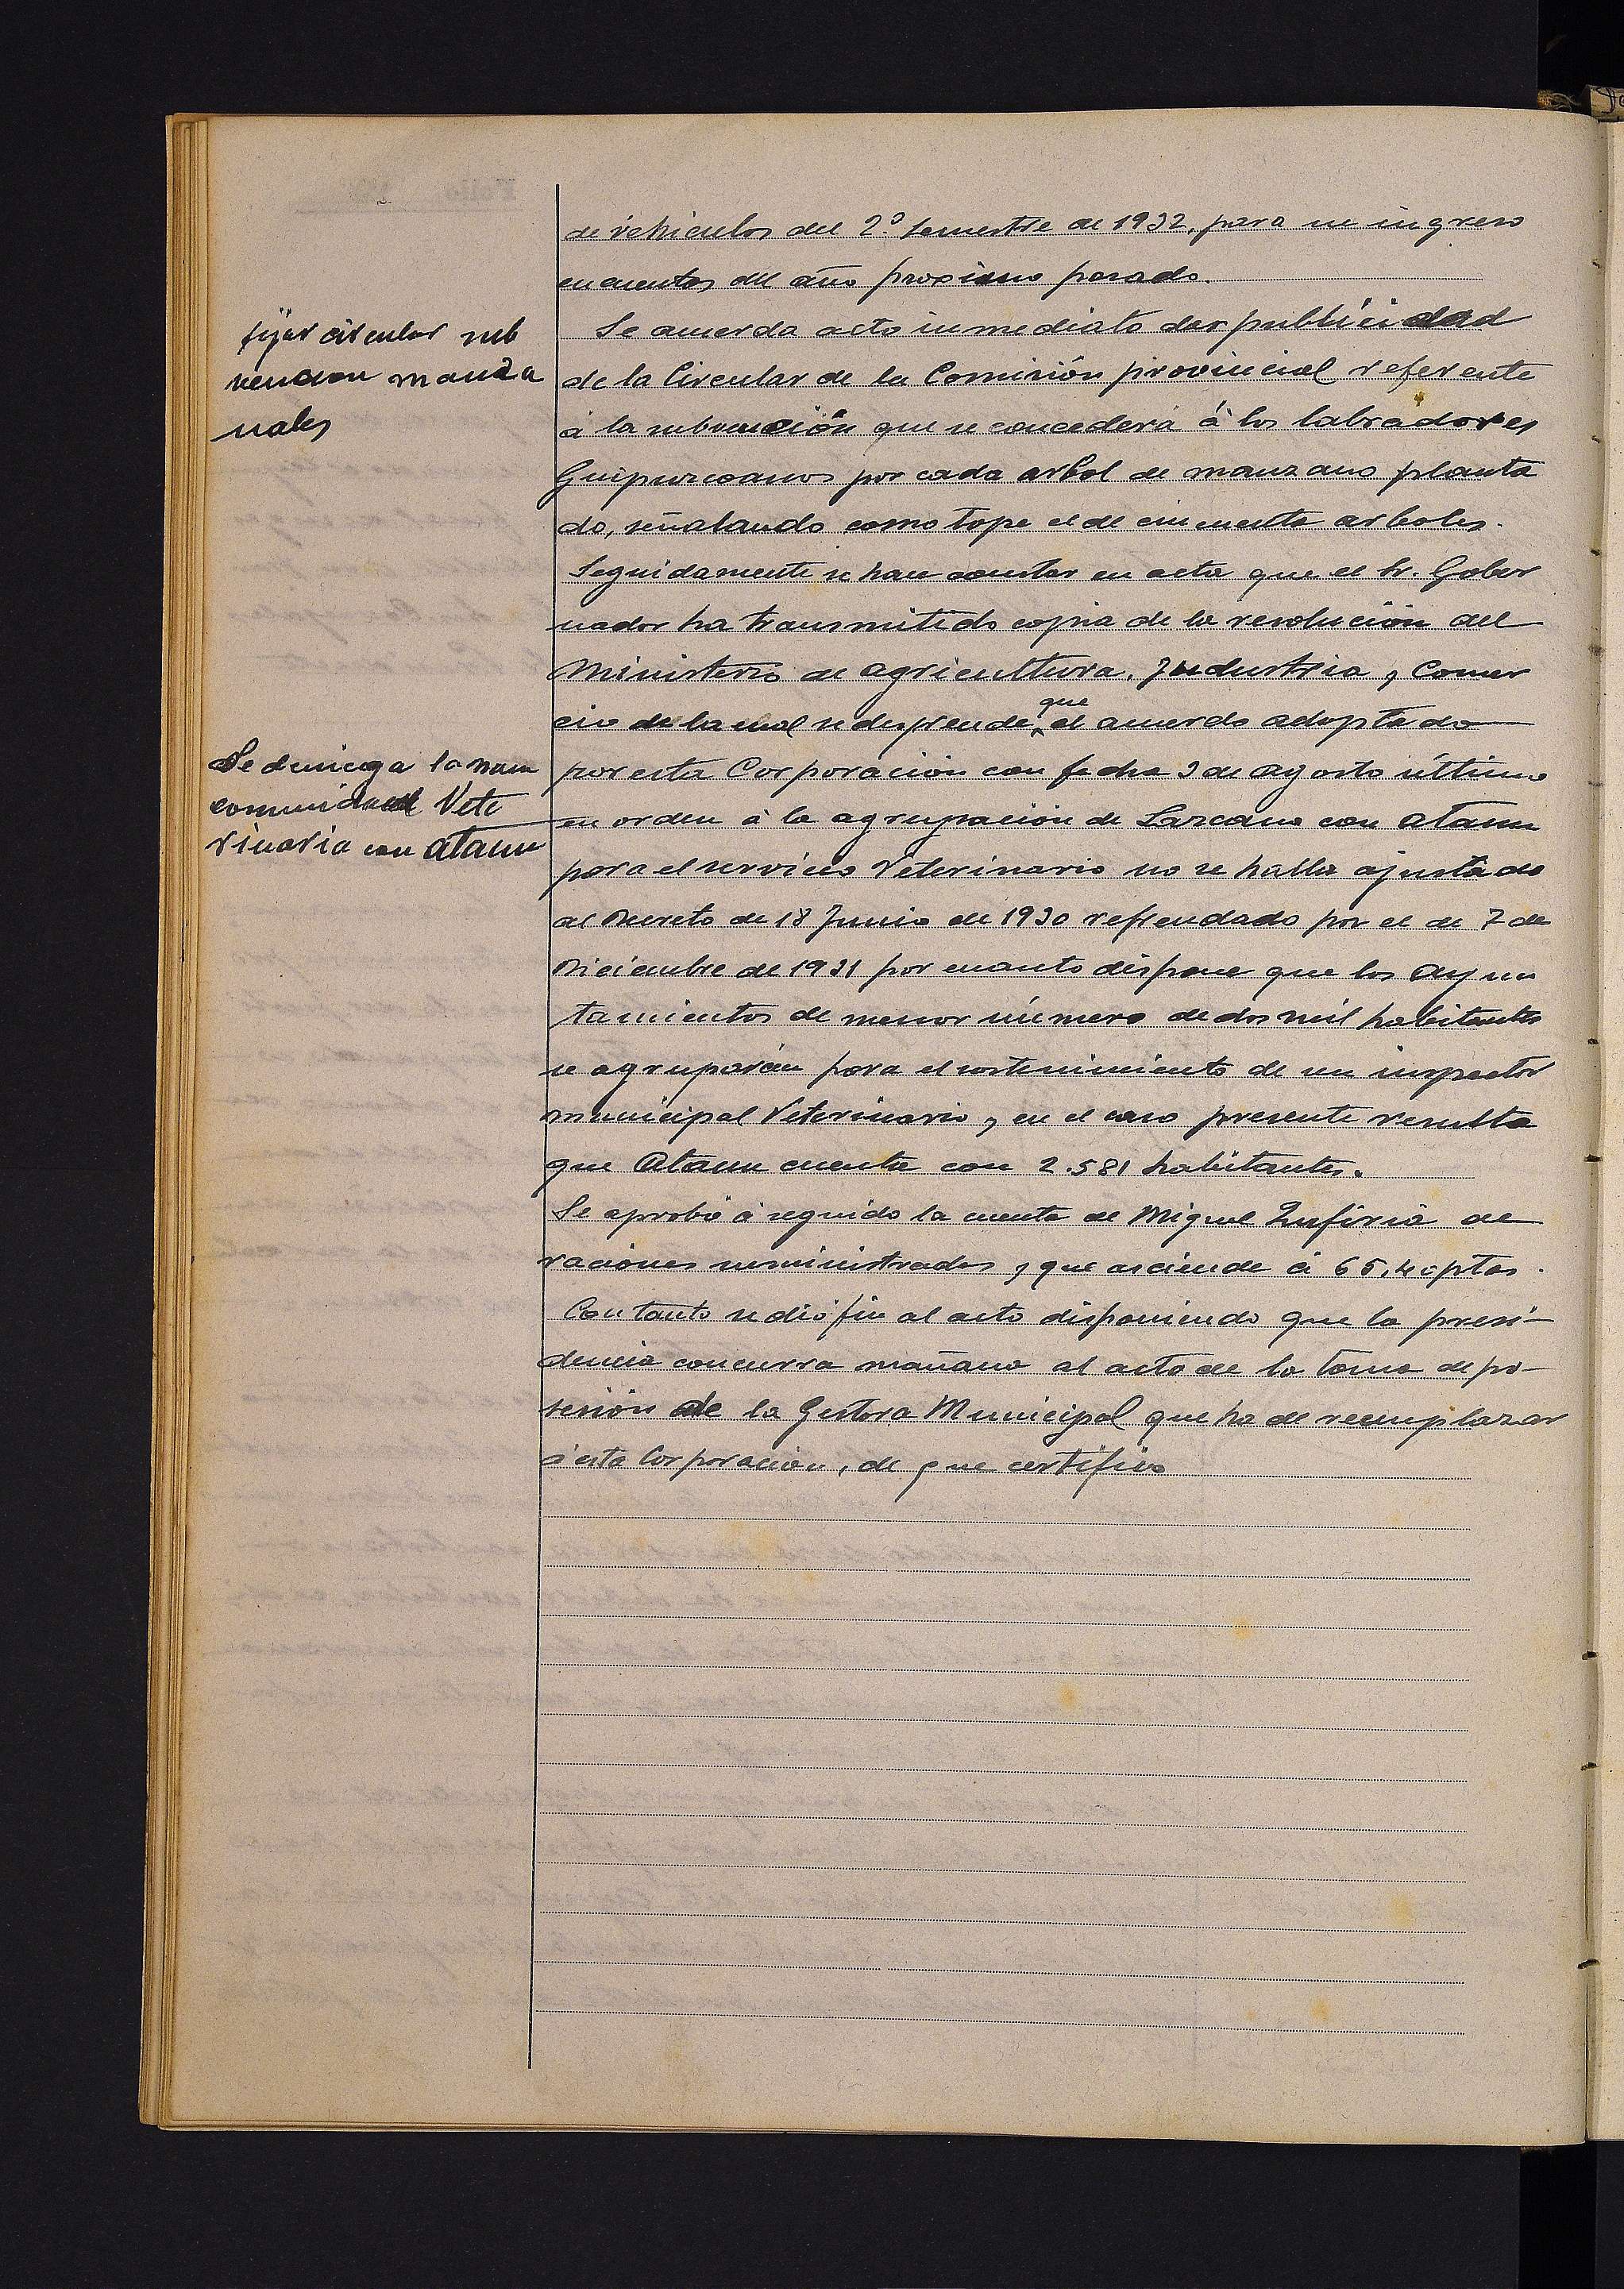 de vehiculos del 2º semestre de 1932, para su ingreso
en cuentas del año proximo pasado.
fijar circular sub
vencion manza
nales
Se acuerda acto inmediato dar publicidad
de la Circular de la Comisión provincial referente
á la subvención que se concederá á los labradores
Guipuzcoanos por cada arbol de manzano planta
do, señalando como tope el de cincuenta arboles.
Seguidamente se hace constar en acta que el Sr. Gober
nador ha transmitido copia de la resolución del
Ministerio de agricultura, Industria y Comer
cio de la cual se desprende que el acuerdo adoptado
Se deniega la man
comunidad Vete
rinaria con Ataun
por esta Corporación con fecha 3 de agosto último
en orden á la agrupación de Lazcano con Ataun
para el servicio Veterinario no se halla ajustado
al Decreto de 18 Junio de 1930 refrendado por el de 7 de
Diciembre de 1931 por cuanto dispone que los Ayun
tamientos de menor número de dos mil habitantes
se agruparán para el sostenimiento de un inspector
municipal Veterinario y en el caso presente resulta
que Ataun cuenta con 2.581 habitantes.
Se aprobó á seguido la cuenta de Miguel Zufiria de
raciones suministradas y que asciende á 65,40 ptas.
Con tanto se dió fin al acto disponiendo que la presi-
dencia concurra mañana al acto de la toma de po-
sesión de la Gestora Municipal que ha de reemplazar
á esta Corporación, de que certifico